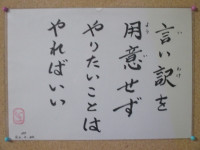 言い訳を
用意せず
やりたいことは
やればいい